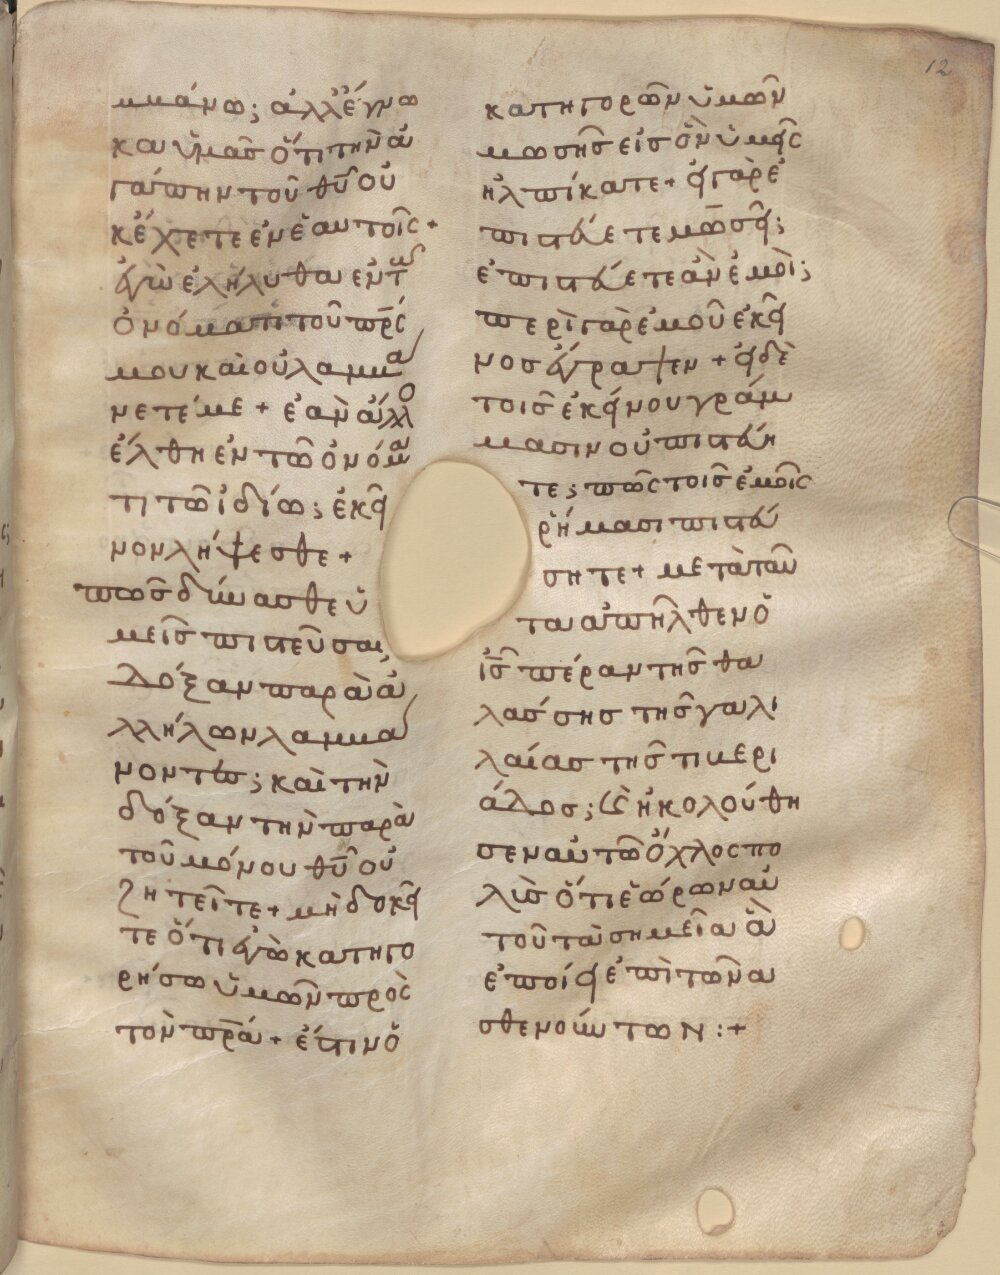 12
μμάνω; ἀλλ' ἔγνω
κα ὑμᾶσ ὅτι τὴν ἀ
γάπην τοῦ θῡ οὐ
κ ἔχετε ἐν ἑαυτοῖς +
ἐγὼ ἐλήλυθα ἐν τῶ
ὀνόματι τοῦ πρ̅ς
μου καὶ οὐ λαμμά
νετέ με + ἐὰν ἄλλο
ἔλθη ἐν τῶ ὀνόμα
τι τῶ ἰδίω; ἐκεῖ
νον λήψεσθε +
πῶσ δύνασθε ὑ
μεῖσ πιστεῦσαι,
δόξαν παρὰ ἀ
λλήλων λαμμά
νοντες; καὶ τὴν
δόξαν τὴν παρὰ
τοῦ μόνου θῡ οὐ
ζητεῖτε + μὴ δοκεῖ
τε ὅτι ἐγὼ κατηγο
ρήσω ὑμῶν πρὸς
τὸν πρ̅α + ἔστιν ὁ
κατηγορῶν ὑμῶν
μωσῆσ εἰσ ὃν ὑμεῖς
ἠλπίκατε + εἰ γὰρ ἐ
πιστεύετε μωσεῖ;
ἐπιστεύετε ἂν ἐμοὶ;
περὶ γὰρ ἐμοῦ ἐκεῖ
νοσ ἔγραψεν + εἰ δὲ
τοισ ἐκείνου γράμ
μασιν οὐ πιστεύη
τε; πῶς τοισ ἐμοῖς
ρήμασι πιστεύ
σητε + μετὰ ταῦ
τα ἀπῆλθεν ὁ
ι̅σ̅ πέραν τησ θα
λάσσησ τῆσ γαλι
λαίασ τῆσ τιβερι
άδοσ; καὶ ἠκολούθη
σεν αὐτῶ ὄχλος πο
λὺσ ὅτι ἑώρων αὐ
τοῦ τὰ σημεῖα ἃ
ἐποίει ἐπὶ τῶν α
σθενούντων :+